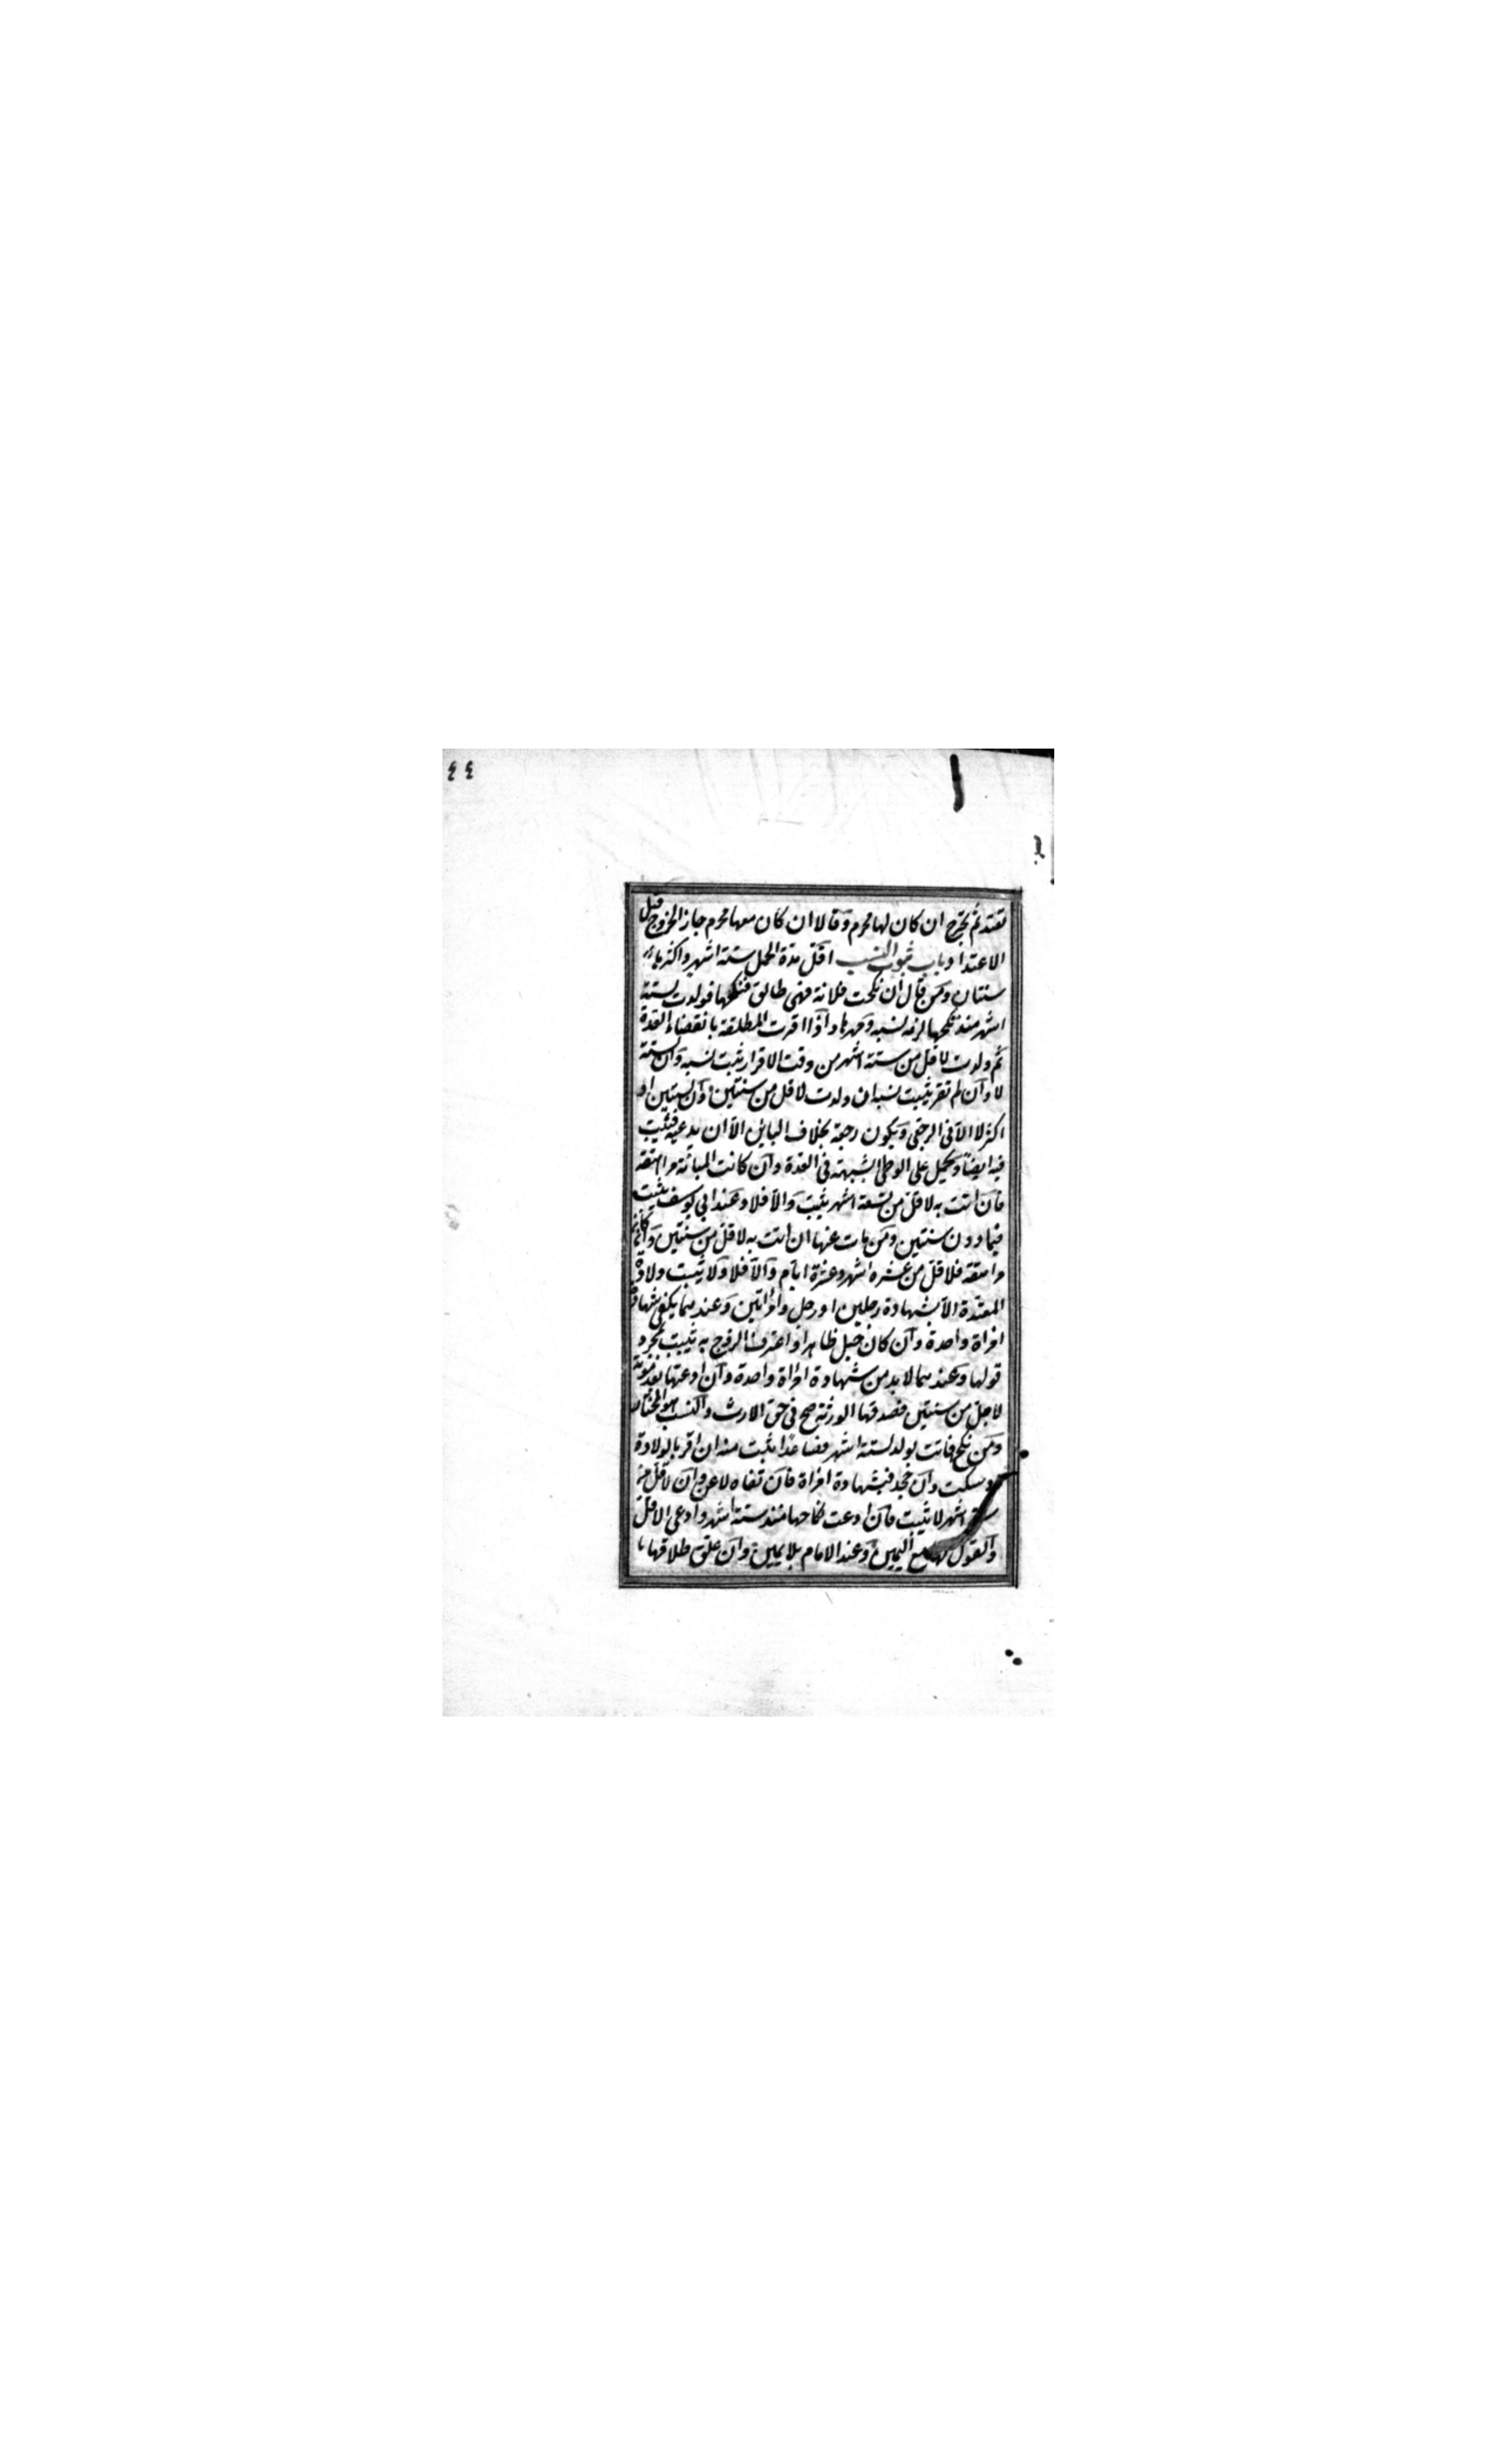 ٤٤
تعتد ثم تخرج ان كان لها محرم وقالا ان كان معها محرم جاز الخروج قبل
الاعتداد باب ثبوت النسب اقل مدة الحمل ستة اشهر واكثرها
سنتان ومن قال ان نكحت فلانة فهى طالق فنكحها فولدت لستة
اشهر منذ نكحها لزمه نسبه ومهرها واذا اقرت المطلقة بانقضاء العدة
ثم ولدت لاقل من ستة اشهر من وقت الاقرار يثبت نسبه وان لستة
لا وان لم تقر يثبت نسبه ان ولدت لاقل من سنتين وان لسنتين او
اكثر لا الا فى الرجعى ويكون رجعة بخلاف الباين الا ان يدعيه فيثبت
فيه ايضا ويحمل على الوطئ بشبهة فى العدة وان كانت المبانة مراهقة
فان اتت به لاقل من تسعة اشهر يثبت والا فلا وعند ابى يوسف يثبت
فيما دون سنتين ومن مات عنها ان اتت به لاقل من سنتين وان كانت
مراهقة فلاقل من عشره اشهر وعشرة ايام والا فلا ولا يثبت ولادة
المعتدة الا بشهادة رجلين او رجل وامراتين وعندهما يكفى شهادة
امراة واحدة وان كان حبل ظاهر او اعترف الزوج به يثبت بمجرد
قولها وعندهما لا بد من شهادة امراة واحدة وان ادعتها بعد موته
لاجل من سنتين فصدقها الورثة صح فى حق الارث والنسب هو المختار
ومن نكح فاتت بولد لستة اشهر فصاعدا يثبت منه ان اقر بالولادة
او سكت وان جحد فبشهادة امراة فان نفاه لاعن وان لاقل من
ستة اشهر لا يثبت فان ادعت نكاحها منذ ستة اشهر وادعى الاقل
والقول لها مع اليمين وعند الامام بلا يمين وان علق طلاقها